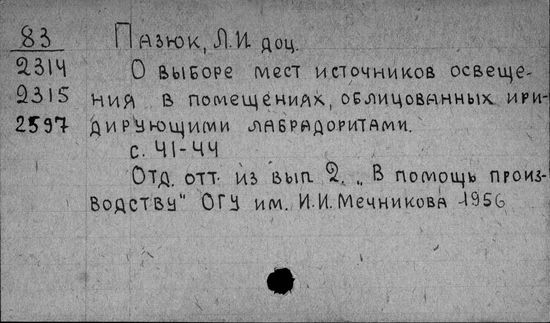 83 Пазюк, Л.И. доц.
2314 О выборе мест источников освеще-
2315 ния в помещениях, облицованных ири-
2597 дирующими лабрадоритами.
с. 41-44
Отд. отт. из вып. 2. „В помощь произ-
водству" ОГУ им. И.И. Мечникова 1956